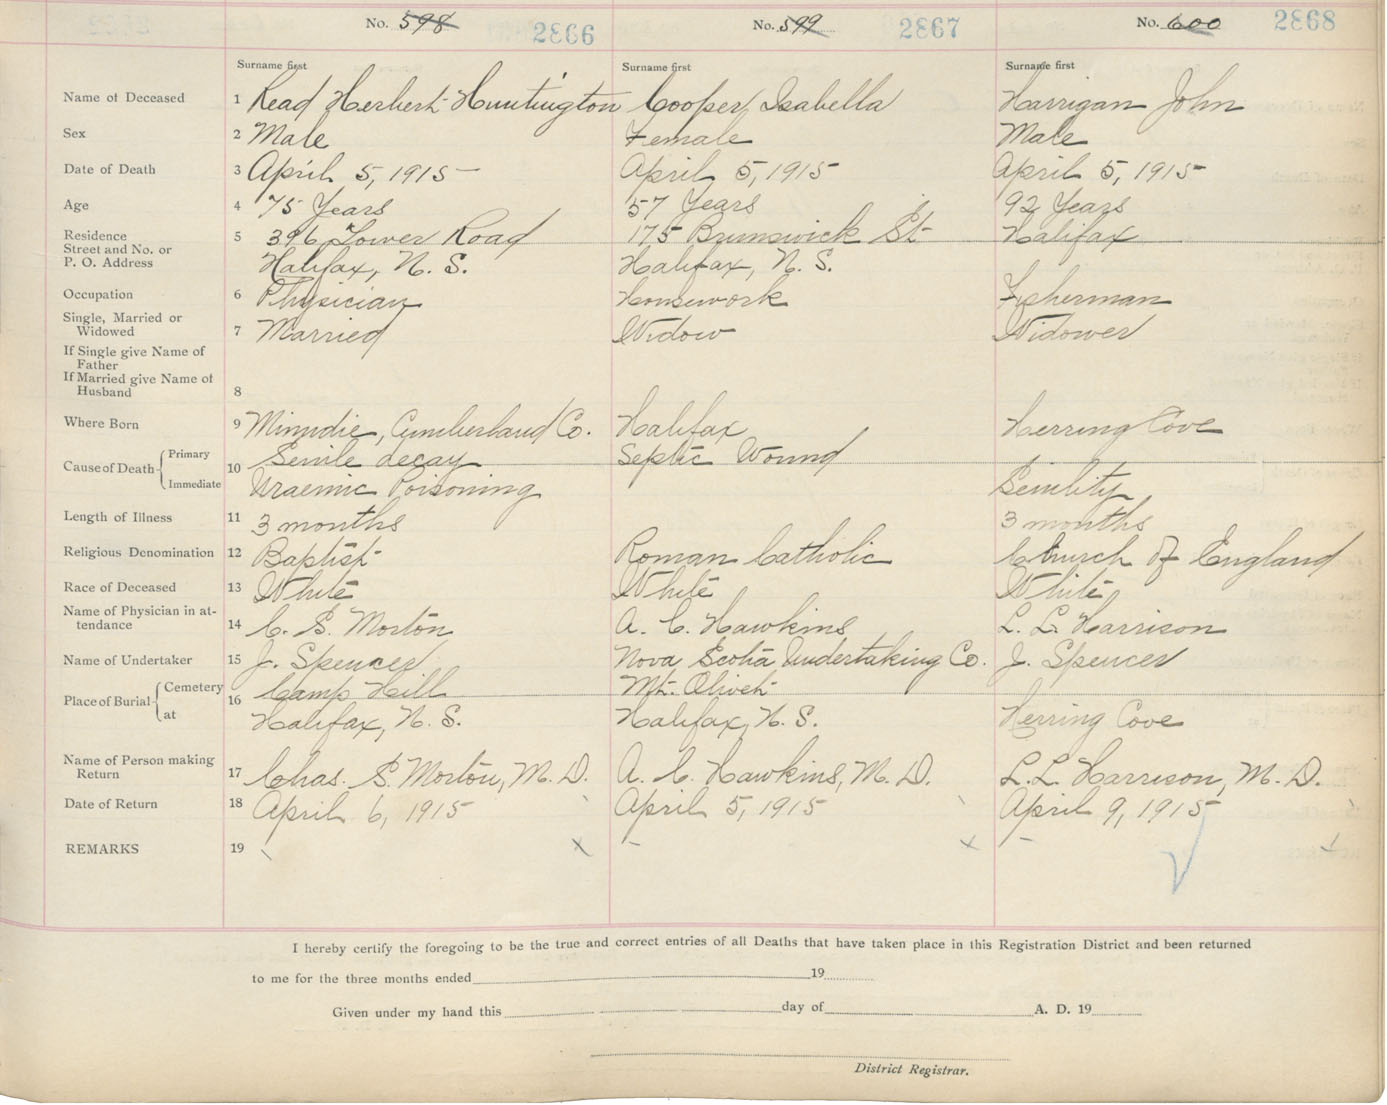 No. 598 2866 No. 599 2867 No. 600 2868
Surname first Surname first Surname first
Name of Deceased 1 Read Herbert Huntington Cooper Isabella Harrigan John
Sex 2 Male Female Male
Date of Death 3 April 5, 1915 April 5, 1915 April 5, 1915
Age 4 75 Years 57 Years 92 Years
Residence 5 396 Tower Road 175 Brunswick St Halifax
Street and No. or
P. O. Address Halifax, N. S. Halifax, N. S.
Occupation 6 Physician Housework Fisherman
Single, Married or
Widowed 7 Married Widow Widower
If Single give Name of
Father
If Married give Name of
Husband 8
Where Born 9 Minudie, Cumberland Co. Halifax Herring Cove
Cause of Death Primary 10 Senile decay Septic Wound
Immediate Uraemic Poisoning Senility
Length of Illness 11 3 months 3 months
Religious Denomination 12 Baptist Roman Catholic Church of England
Race of Deceased 13 White White White
Name of Physician in at-
tendance 14 C. S. Morton A. C. Hawkins L. L. Harrison
Name of Undertaker 15 J. Spencer Nova Scotia Undertaking Co. J. Spencer
Place of Burial Cemetery 16 Camp Hill Mt. Olivet
at Halifax, N. S. Halifax, N. S. Herring Cove
Name of Person making
Return 17 Chas. S. Morton, M. D. A. C. Hawkins, M. D. L. L. Harrison, M. D.
Date of Return 18 April 6, 1915 April 5, 1915 April 9, 1915
REMARKS 19
I hereby certify the foregoing to be the true and correct entries of all Deaths that have taken place in this Registration District and been returned
to me for the three months ended 19
Given under my hand this day of A. D. 19
District Registrar.